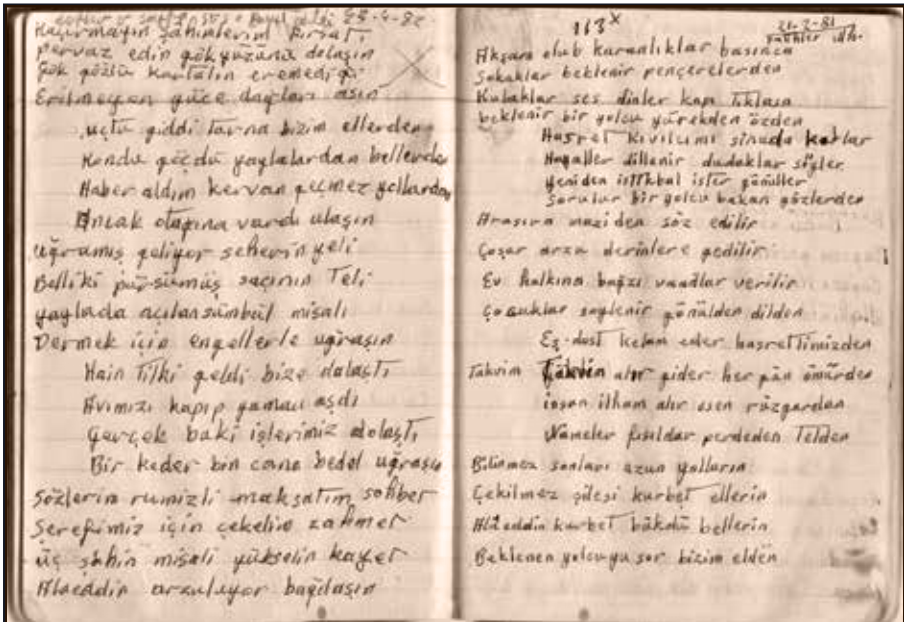 25-4-82
Kaçırmayın şahinlerim fırsatı
pervaz edin gök yüzünü dolaşın
Gök gözlü kartalın eremediği
Erilmeyen yüce dağları aşın
uçtu giddi turna bizim ellerden
Kondu göçdü yaylalardan bellerden
Haber aldım kervan geçmez yollardan
Ancak otağına vardı ulaşın
uğramış geliyor seherin yeli
Belliki pürsümüş saçının Teli
yaylada açılan sümbül misali
Dermek için engellerle uğraşın
Hain Tilki geldi bize dolaştı
Avımızı kapıp yamacı aşdı
Gerçek baki işlerimiz dolaştı
Bir keder bin cana bedel uğraşın
Sözlerin rumizli maksatım sohbet
Şerefimiz için çekelim zahmet
üç şahin misali yükselin gayet
Alaeddin arzuluyor bağılaşın
113 x
21-2-81
Akşam olub karanlıklar basınca
Sokaklar beklenir pençerelerden
Kulaklar ses dinler kapı tıklasa
beklenir bir yolcu yürekden özden
Hasret kıvılcımı sinada
Hayaller dillenir dudaklar söyler
Yeniden istikbal ister gönüller
Sorulur bir yolcu bakan gözlerden
Arasıra maziden söz edilir
Çoşar arza derinlere gedilir
Ev halkına bağzı vaadlar verilir
Çocuklar soylenir gönülden dilden
Eş-dost kelam eder hasretimizden
Takvim alır gider her gün ömürden
insan ilham alır esen rüzgardan
Nameler fısıldar perdeden Telden
Bilinmez sonları uzun yolların
Çekilmez çilesi kurbet ellerin
Alaeddin kurbet bükdü bellerin
Beklenen yolcuyu sor bizim elden